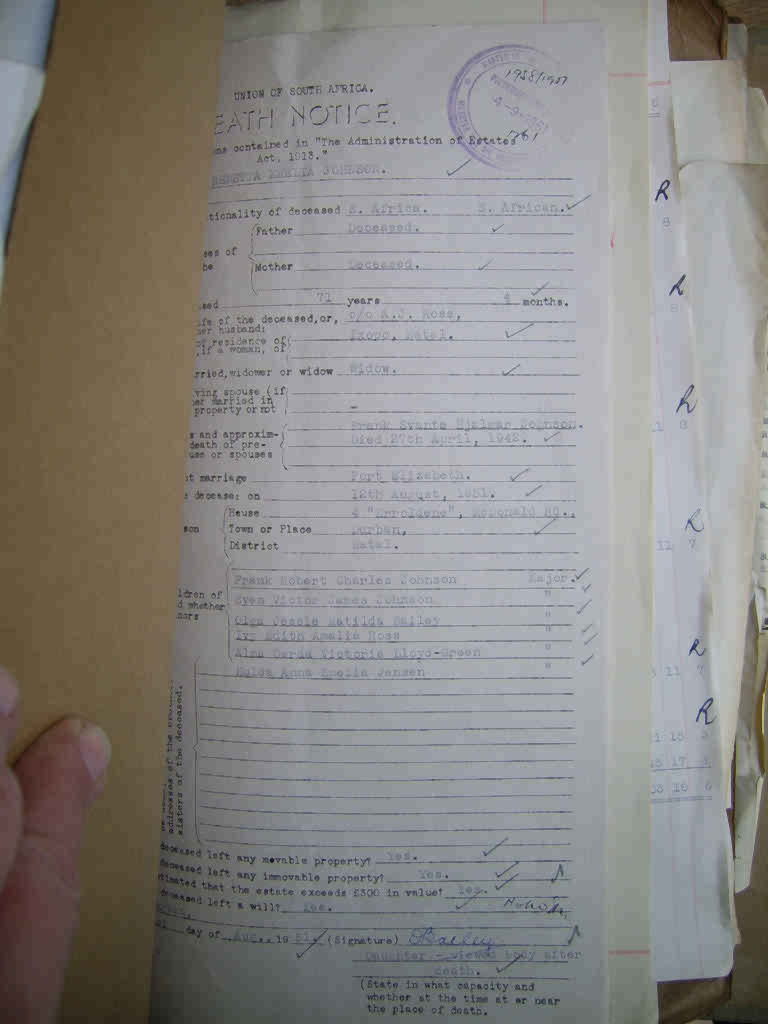 1988/1951
4-9-1951
1761
UNION OF SOUTH AFRICA.
EATH NOTICE.
ons contained in "The Administration of Estates
Act, 1913."
AMELIA JOHNSON.
tionality of deceased S. Africa. S. African.
Father Deceased.
ses of
he
Mother Deceased.
sed 71 years 4 months.
ife of the deceased, or, c/o A.J. Ross,
her husband:
of residence of Ixopo, Natal.
, if a woman, of
rried, widower or widow Widow.
ving spouse (if
er married in
property or not -
Frank Svante Hjalmar Johnson.
s and approxim-
death of pre- Died 27th April, 1942.
use or spouses
t marriage Port Elizabeth.
decease: on 12th August, 1951.
House 4 "Erroldene", McDonald Rd.,
son Town or Place Durban,
District Natal.
Frank Robert Charles Johnson Major.
ldren of Sven Victor James Johnson "
d whether
nors Olga Jessie Matilda Bailey "
Ivy Edith Amalia Ross "
Alma Gerda Victoria Lloyd-Green "
Hulda Anna Emelia Jensen "
addresses of the
sisters of the deceased.
deceased left any movable property? Yes.
deceased left any immovable property? Yes.
timated that the estate exceeds £300 in value? Yes.
deceased left a will? Yes.
day of Aug., 1951. (Signature) OBailey
Daughter - viewed body after
death.
(State in what capacity and
whether at the time at or near
the place of death.
R
8
R
8
R
11 8
R
11 7
R
11 7
R